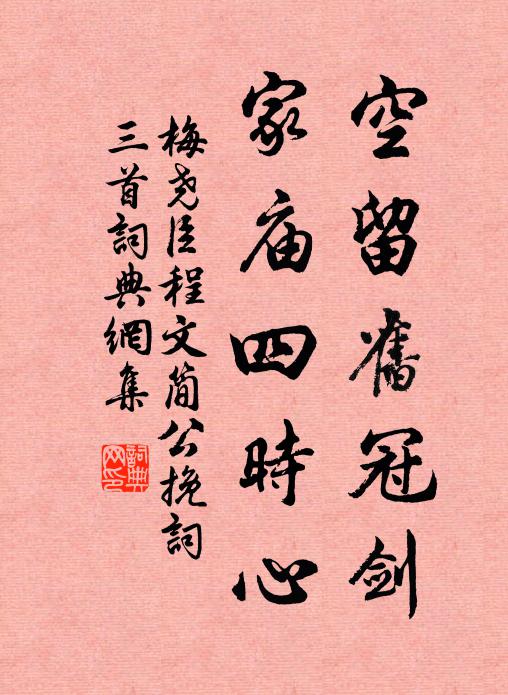 空留舊冠劍
家庙四時心
梅尧臣程文简公挽詞
三首詞典網集
詞典网印